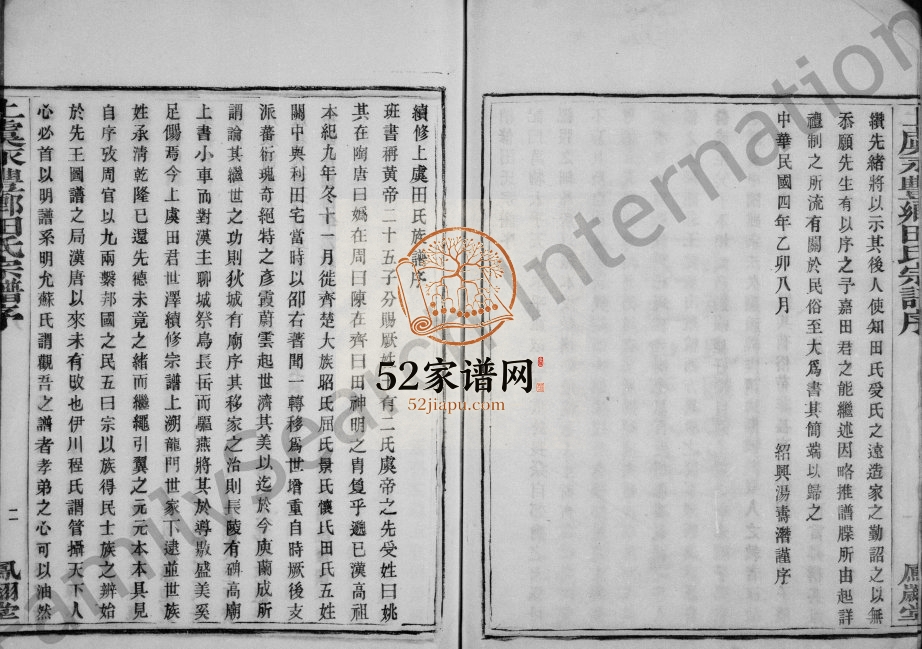 纘先緒將以示其後人使知田氏受氏之遠造家之勤詔之以無
忝願先生有以序之予嘉田君之能繼述因略推譜牒所由起詳
禮制之所流有關於民俗至大為書其簡端以歸之
中華民國四年乙卯八月 紹興湯壽潛謹序
續修上虞田氏族譜序
班書稱黃帝二十五子分賜厥姓 有二氏虞帝之先受姓曰姚
其在陶唐曰媯在周曰陳在齊曰田神明之胄敻乎邈已漢高祖
本紀九年冬十一月徙齊楚大族昭氏屈氏景氏懷氏田氏五姓
關中與利田宅當時以卲右著聞一轉移爲世增重自時厥後支
派蕃衍瑰奇絕特之彥霞蔚雲起世濟其美以迄於今庚蘭成所
謂論其繼世之功則狄城有廟序其移家之治則長陵有碑高廟
上書小車而對漢主聊城祭鳥長岳而驅燕將其於導敭盛美奚
足儩焉今上虞田君世澤續修宗譜上溯龍門世家下逮並世族
姓承清乾隆已還先德未竟之緒而繼繩引翼之元元本本具見
自序攷周官以九兩繫邦國之民五曰宗以族得民士族之辨始
於先王圖譜之局漢唐以來未有攺也伊川程氏謂管攝天下人
心必首以明譜系明允蘇氏謂觀吾之譜者孝弟之心可以油然
上虞永豐鄉田氏宗譜序
二
鳳翽堂
上虞永豐鄉田氏宗譜序
一
鳳翽堂
52家谱网
52jiapu.com
FamilySearch International